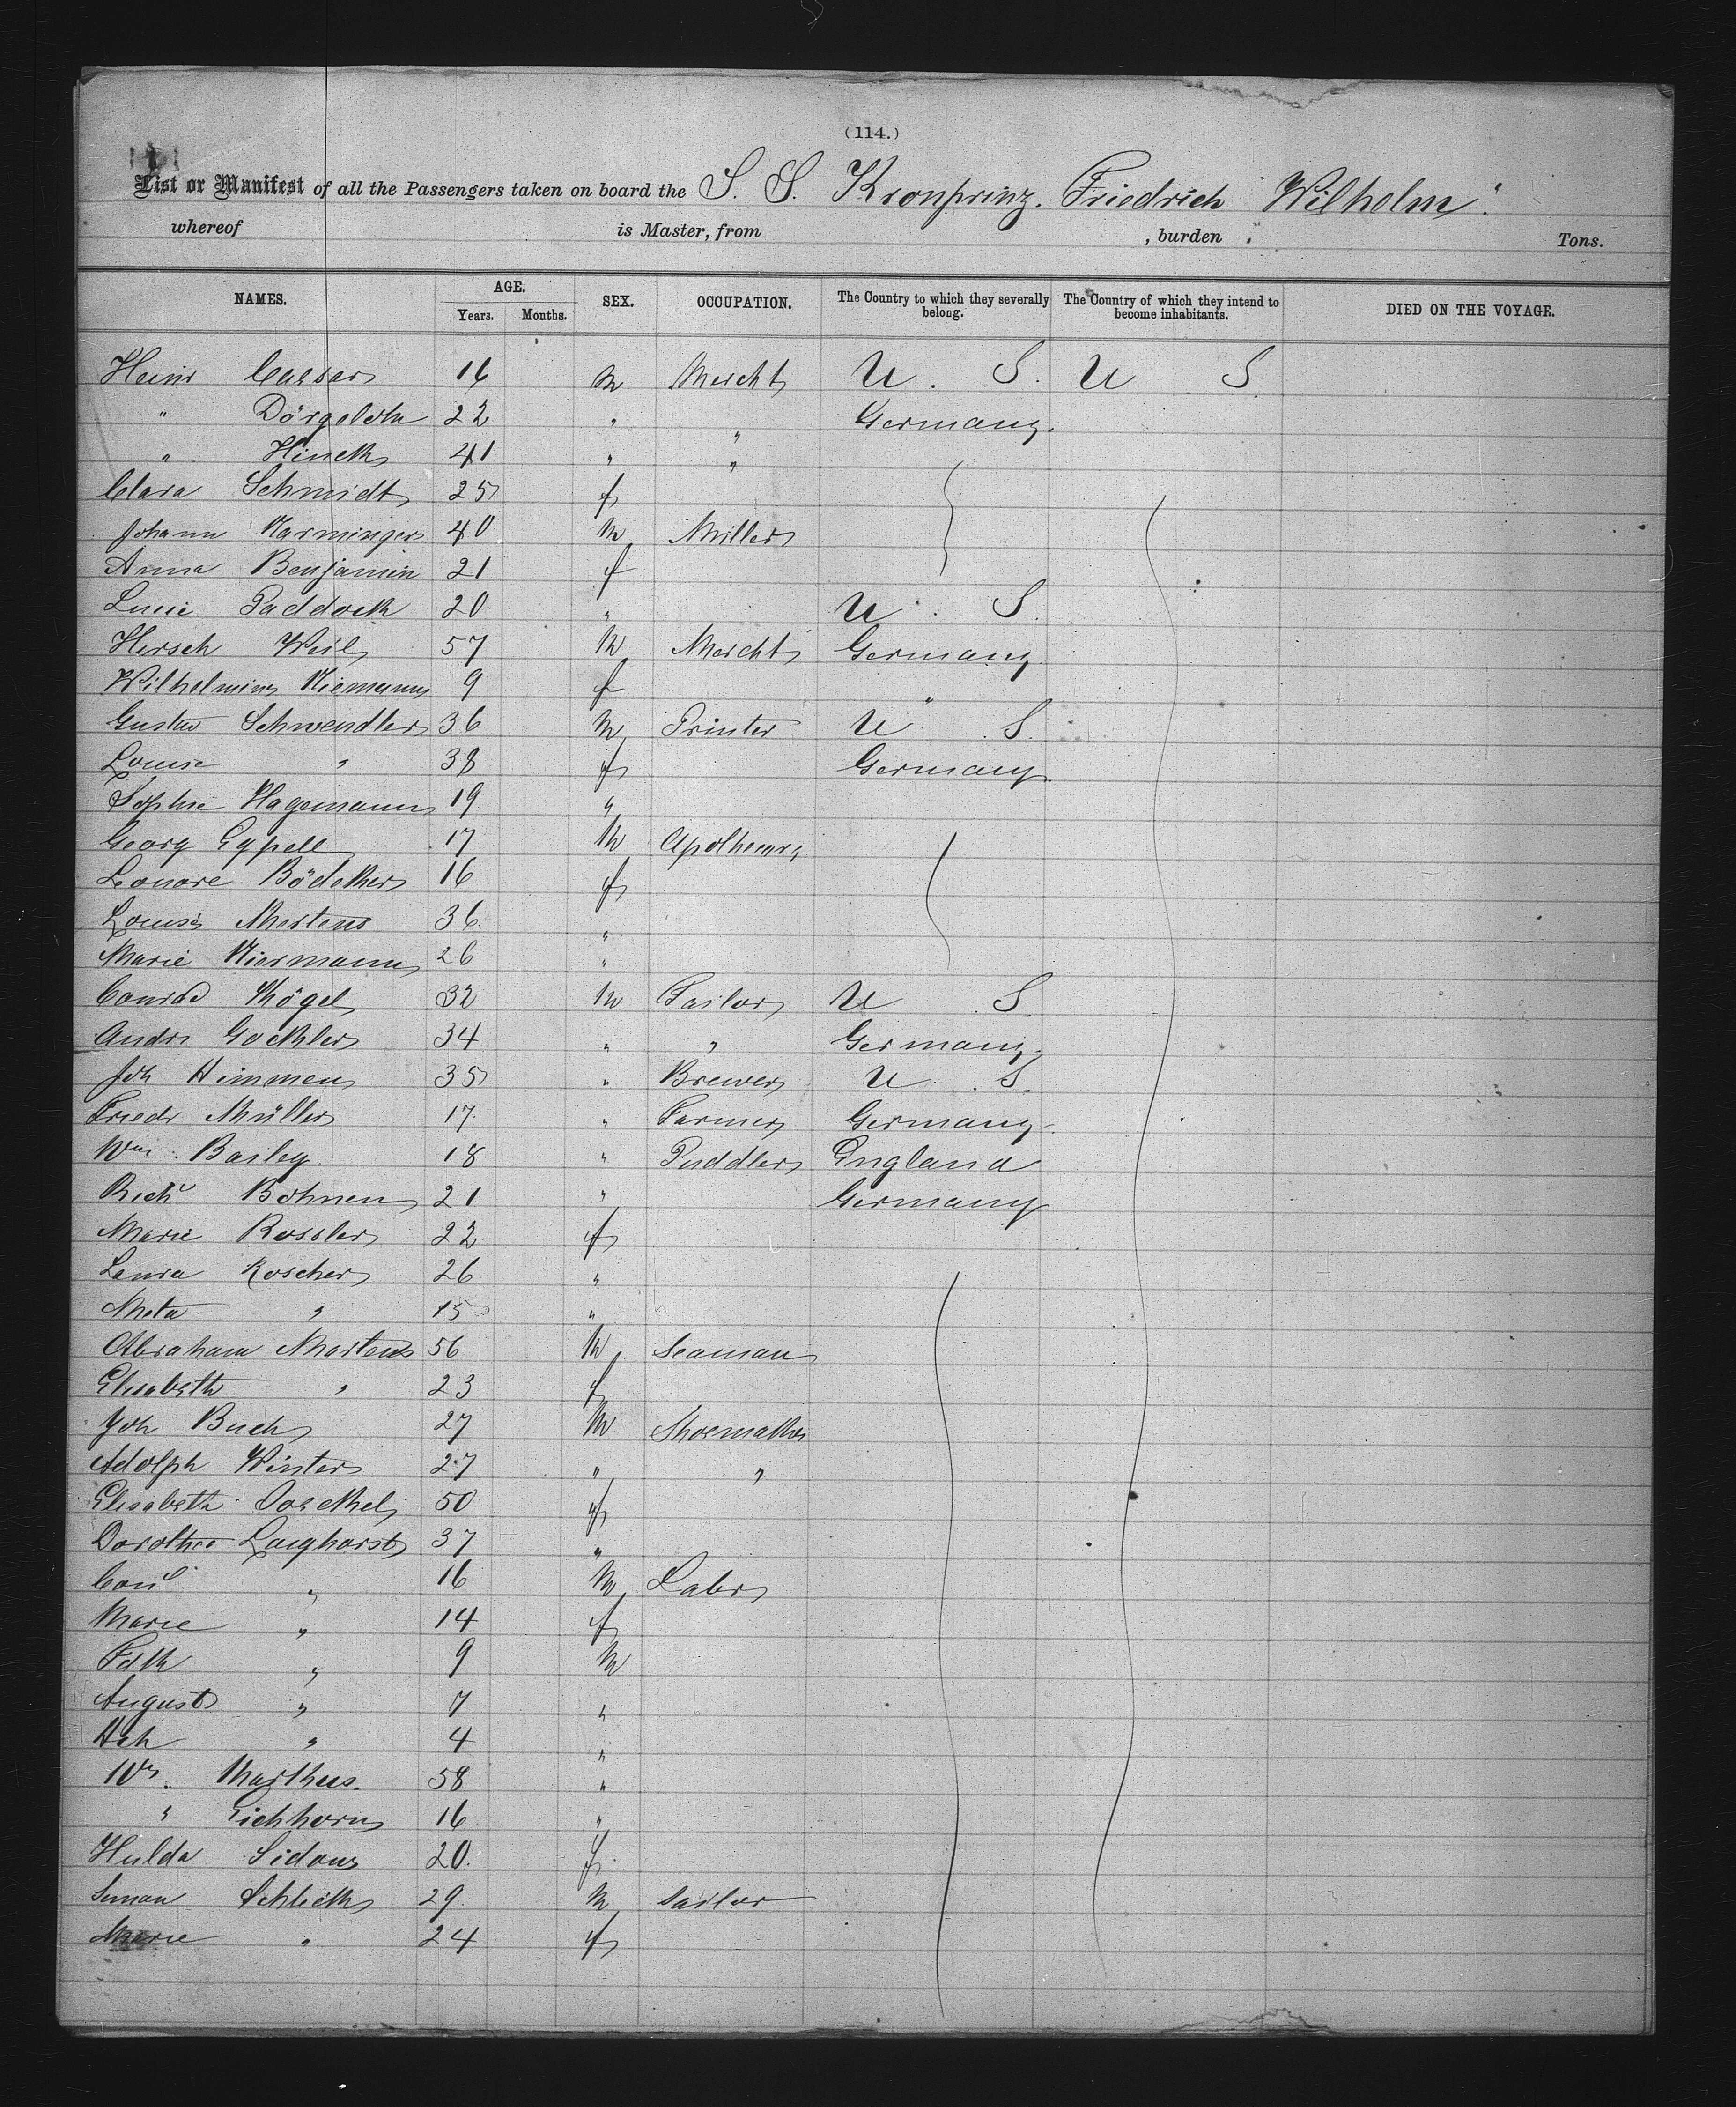 (114.)
List or Manifest of all the Passengers taken on board the S. S. Kronprinz. Friedrich Wilhelm"
whereof is Master, from , burden Tons.
NAMES. AGE. Years. Months. SEX. OCCUPATION. The Country to which they severally belong. The Country of which they intend to become inhabitants. DIED ON THE VOYAGE.
Heinr Caesar 16 m Mercht U. S. U S
" Dörgeloh 22 " " Germany.
" Hinck 41 " "
Clara Schmidt 25 f
Johann 40 m Miller
Anna Benjamin 21 f
Lucie Paddock 20 " U. S.
Hersch Weil 57 m Mercht Germany
Wilhelmine Niemann 9 f "
Gustav Schwendler 36 m Printer U. S.
Louise " 38 f Germany
Sophie Hagemann 19 "
Georg Eppell 17 m Apothecary
Leonore Bödeker 16 f
Louise Mertens 36 "
Marie Niermann 26 "
Conrad Kögel 32 m Tailor U S.
Andr Gockler 34 " " Germany
Joh Himmen 35 " Brewer U. S.
Friedr Müller 17 " Farmer Germany
Wm Bailey 18 " Puddler England
Richd Bohnen 21 " Germany
Marie Rossler 22 f
Laura Roscher 26 "
Meta " 15 "
Abraham Martens 56 m Seaman
Elisabeth " 23 f
Joh Buch 27 m Shoemaker
Adolph Winter 27 " "
Elisabeth 50 f
Dorothea Langhorst 37 "
" 16 m Labr
Marie " 14 f
" 9 m
August " 7 "
" 4 "
Wm. 58 "
" Eichhorn 16 "
Hulda 20. f
Simon Schlick 29. m Sailor
Marie " 24 f